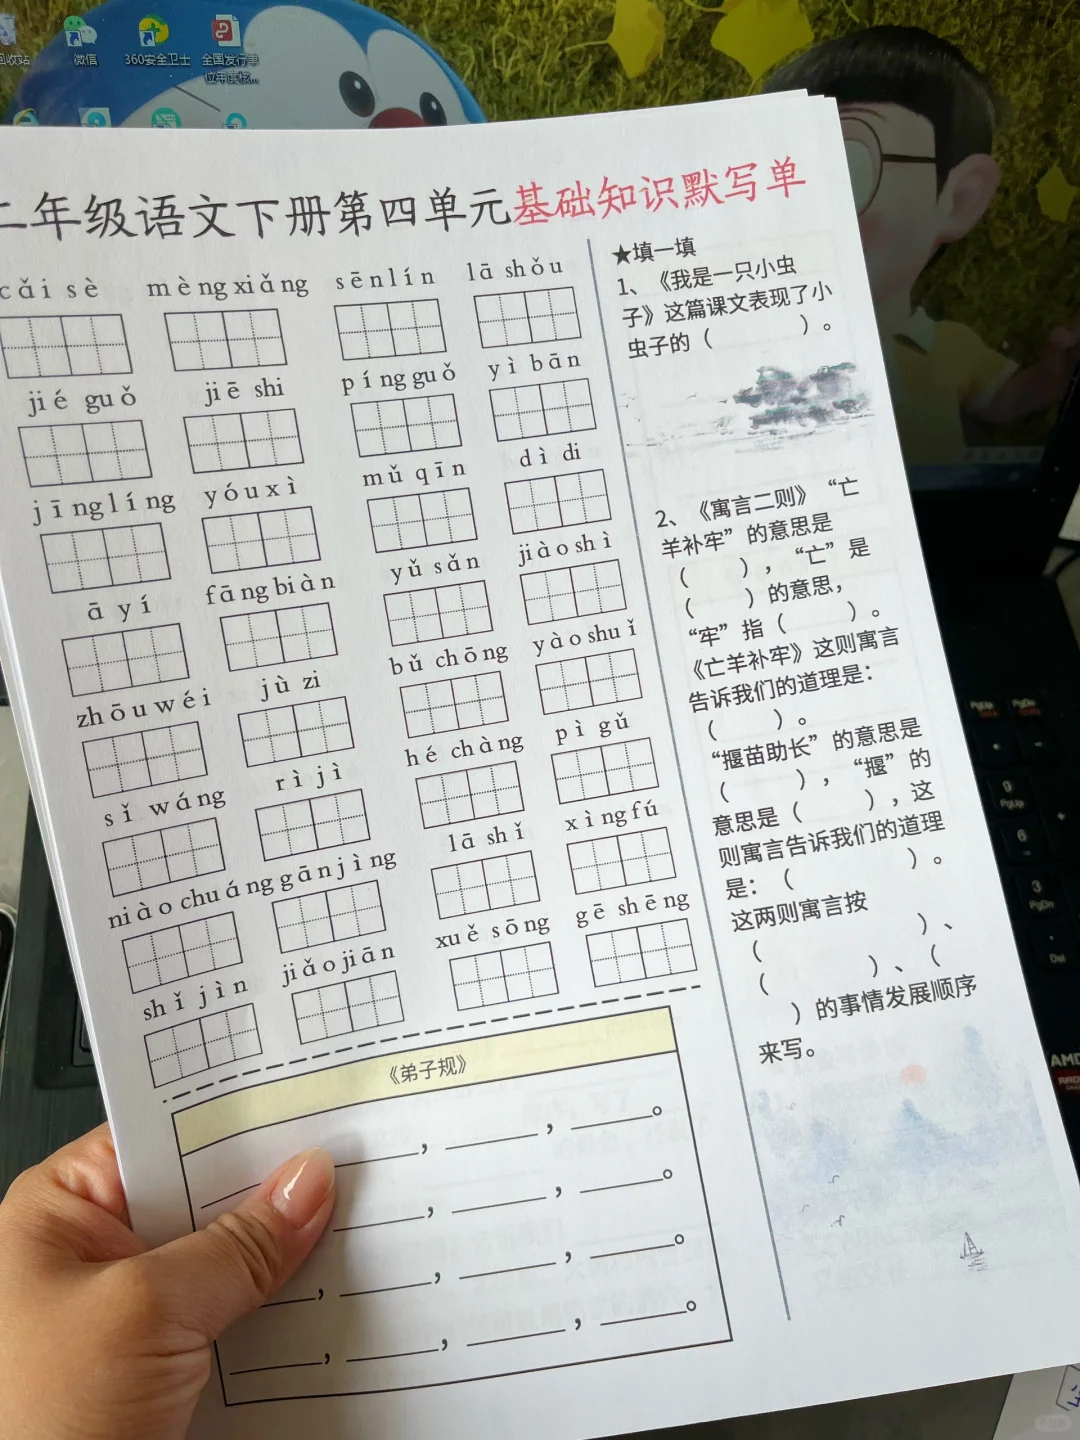 微信
360安全卫士
全国发行单
位年度核...
二年级语文下册第四单元基础知识默写单
cǎi sè mèng xiǎng sēn lín lā shǒu
jié guǒ jiē shi píng guǒ yì bān
jīng líng yóu xì mǔ qīn dì di
ā yí fāng biàn yǔ sǎn jiào shì
zhōu wéi jù zi bǔ chōng yào shuǐ
sǐ wáng rì jì hé chàng pì gǔ
niào chuáng gān jìng lā shǐ xìng fú
shǐ jìn jiǎo jiān xuě sōng gē shēng
《弟子规》
， ， 。
， ， 。
， ， ， 。
， ， ， 。
★填一填
1、《我是一只小虫
子》这篇课文表现了小
虫子的（ ）。
2、《寓言二则》“亡
羊补牢”的意思是
（ ），“亡”是
（ ）的意思，
“牢”指（ ）。
《亡羊补牢》这则寓言
告诉我们的道理是：
（ ）。
“揠苗助长”的意思是
（ ），“揠”的
意思是（ ），这
则寓言告诉我们的道理
是：（ ）。
这两则寓言按
（ ）、
（ ）、（
）的事情发展顺序
来写。
PgUp
PgDn
9
PgUp
6
3
PgDn
Del
AMD